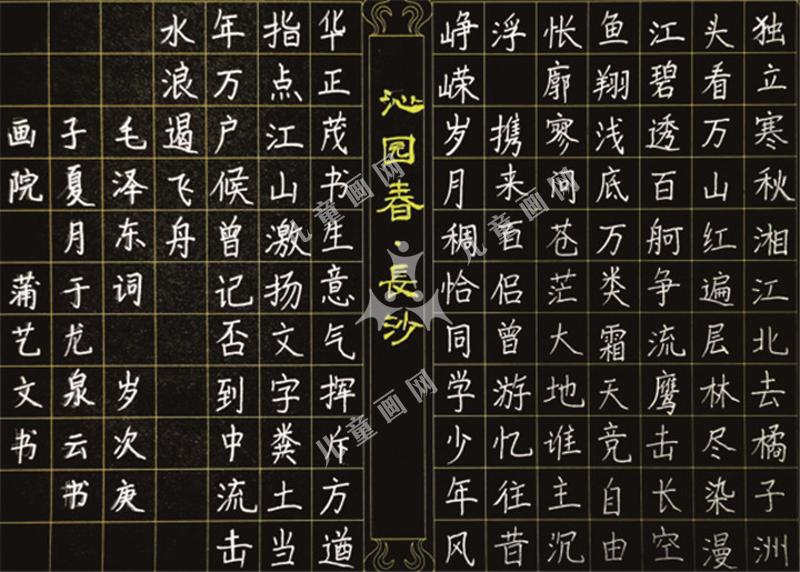 独立寒秋湘江北去橘子洲
头看万山红遍层林尽染漫
江碧透百舸争流鹰击长空
鱼翔浅底万类霜天竞自由
怅廓寥问苍茫大地谁主沉
浮 携来百侣曾游忆往昔
峥嵘岁月稠恰同学少年风
沁园春·長沙
华正茂书生意气挥斥方遒
指点江山激扬文字粪土当
年万户候曾记否到中流击
水浪遏飞舟
毛泽东词 岁次庚
子夏月于龙泉云书
画院 蒲艺文书
儿童画网
儿童画网
儿童画网